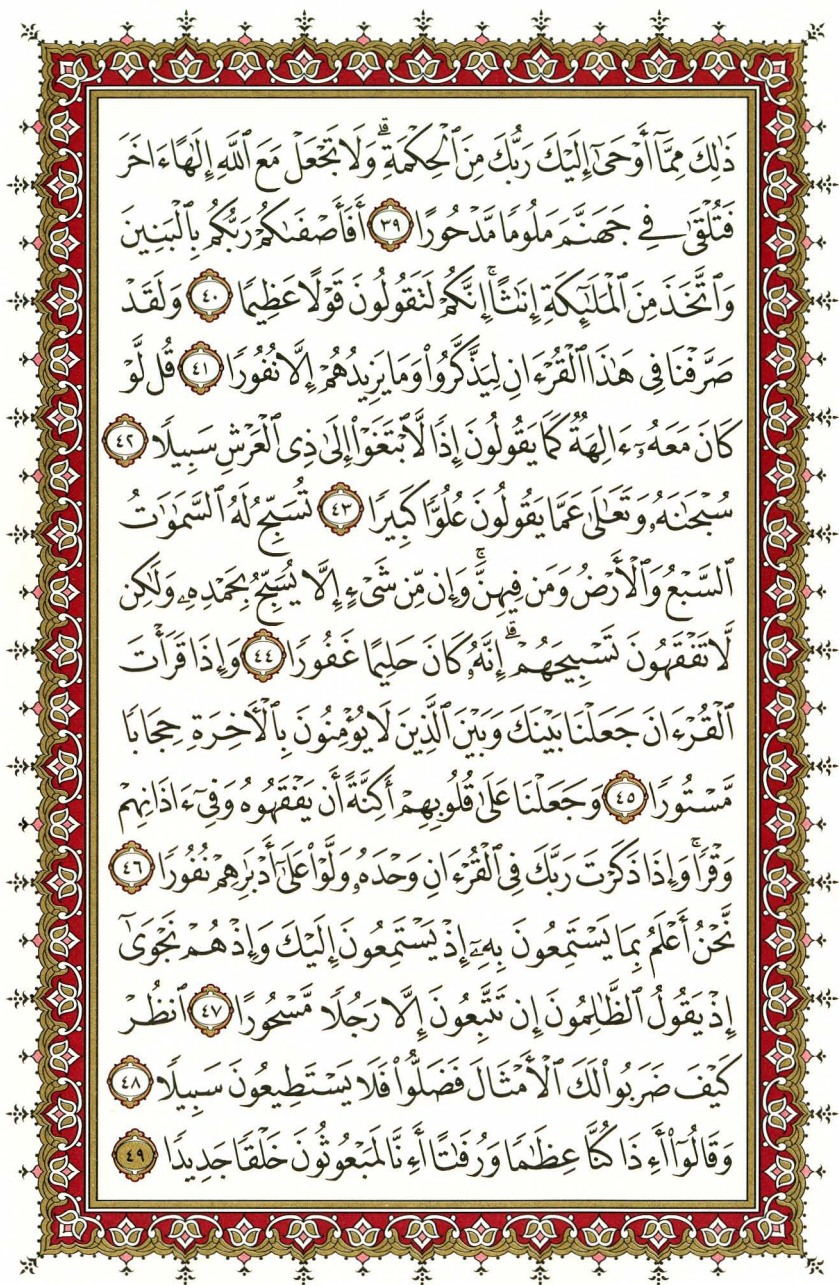 ذَٰلِكَ مِمَّآ أَوْحَىٰٓ إِلَيْكَ رَبُّكَ مِنَ ٱلْحِكْمَةِ ۗ وَلَا تَجْعَلْ مَعَ ٱللَّهِ إِلَٰهًا ءَاخَرَ
فَتُلْقَىٰ فِي جَهَنَّمَ مَلُومًا مَّدْحُورًا ٣٩ أَفَأَصْفَىٰكُمْ رَبُّكُم بِٱلْبَنِينَ
وَٱتَّخَذَ مِنَ ٱلْمَلَٰٓئِكَةِ إِنَٰثًا ۚ إِنَّكُمْ لَتَقُولُونَ قَوْلًا عَظِيمًا ٤٠ وَلَقَدْ
صَرَّفْنَا فِى هَٰذَا ٱلْقُرْءَانِ لِيَذَّكَّرُوا۟ وَمَا يَزِيدُهُمْ إِلَّا نُفُورًا ٤١ قُل لَّوْ
كَانَ مَعَهُۥٓ ءَالِهَةٌ كَمَا يَقُولُونَ إِذًا لَّٱبْتَغَوْا۟ إِلَىٰ ذِى ٱلْعَرْشِ سَبِيلًا ٤٢
سُبْحَٰنَهُۥ وَتَعَٰلَىٰ عَمَّا يَقُولُونَ عُلُوًّا كَبِيرًا ٤٣ تُسَبِّحُ لَهُ ٱلسَّمَٰوَٰتُ
ٱلسَّبْعُ وَٱلْأَرْضُ وَمَن فِيهِنَّ ۚ وَإِن مِّن شَىْءٍ إِلَّا يُسَبِّحُ بِحَمْدِهِۦ وَلَٰكِن
لَّا تَفْقَهُونَ تَسْبِيحَهُمْ ۗ إِنَّهُۥ كَانَ حَلِيمًا غَفُورًا ٤٤ وَإِذَا قَرَأْتَ
ٱلْقُرْءَانَ جَعَلْنَا بَيْنَكَ وَبَيْنَ ٱلَّذِينَ لَا يُؤْمِنُونَ بِٱلْأَخِرَةِ حِجَابًا
مَّسْتُورًا ٤٥ وَجَعَلْنَا عَلَىٰ قُلُوبِهِمْ أَكِنَّةً أَن يَفْقَهُوهُ وَفِىٓ ءَاذَانِهِمْ
وَقْرًا ۚ وَإِذَا ذَكَرْتَ رَبَّكَ فِى ٱلْقُرْءَانِ وَحْدَهُۥ وَلَّوْا۟ عَلَىٰٓ أَدْبَٰرِهِمْ نُفُورًا ٤٦
نَّحْنُ أَعْلَمُ بِمَا يَسْتَمِعُونَ بِهِۦٓ إِذْ يَسْتَمِعُونَ إِلَيْكَ وَإِذْ هُمْ نَجْوَىٰٓ
إِذْ يَقُولُ ٱلظَّٰلِمُونَ إِن تَتَّبِعُونَ إِلَّا رَجُلًا مَّسْحُورًا ٤٧ ٱنظُرْ
كَيْفَ ضَرَبُوا۟ لَكَ ٱلْأَمْثَالَ فَضَلُّوا۟ فَلَا يَسْتَطِيعُونَ سَبِيلًا ٤٨
وَقَالُوٓا۟ أَءِذَا كُنَّا عِظَٰمًا وَرُفَٰتًا أَءِنَّا لَمَبْعُوثُونَ خَلْقًا جَدِيدًا ٤٩